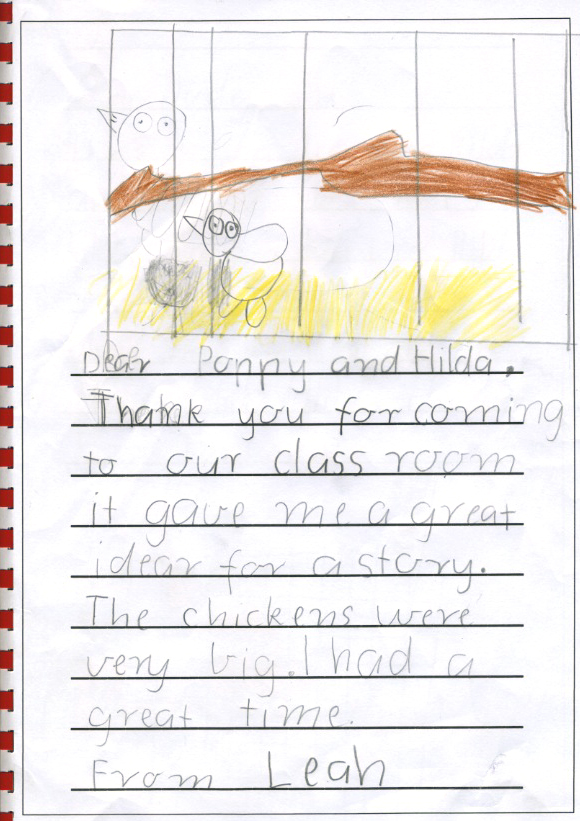 Dear Poppy and Hilda.
Thank you for coming
to our class room
it gave me a great
idear for a story.
The chickens were
very big. I had a
great time.
From Leah